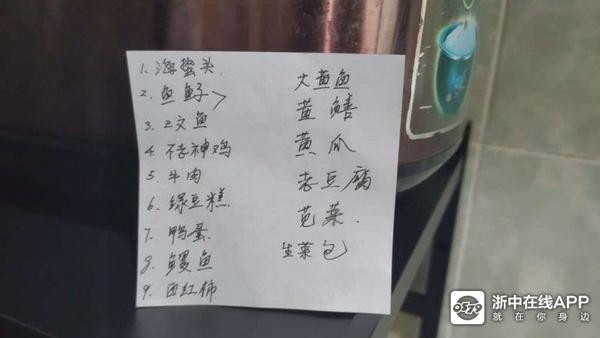 1. 海蜇头
2. 鱼
3. 文鱼
4. 神鸡
5. 牛肉
6. 绿豆糕
7. 鸭蛋
8. 鳗鱼
9. 西红柿
大黄鱼
黄鳝
黄瓜
老豆腐
苋菜
生菜包
浙中在线APP
就在你身边